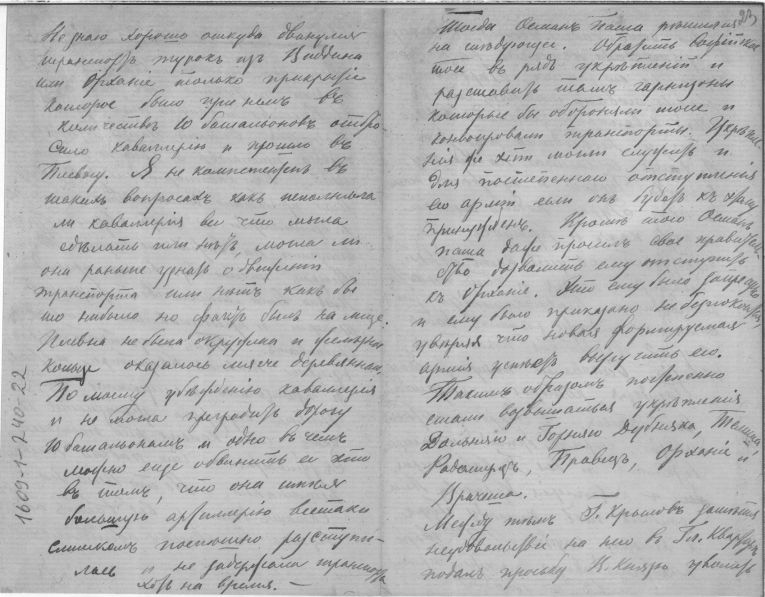 Не знаю хорошо откуда двинулся
транспорт турок из Виддина
или Орханіе только прикрытіе
которое было при немъ въ
количествѣ 10 батальоновъ отбро-
сило кавалерію и прошло въ
Плевну. Я не компетентъ въ
такихъ вопросахъ какъ исполнила
ли кавалерія все что могла
сдѣлать или нѣтъ, могла ли
она раньше узнать о движеніи
транспорта или нѣтъ какъ бы
то нибыло но фактъ былъ на лице.
Плевна не была окружена и
кольцо оказалось деревяннымъ.
По моему убѣжденію кавалерія
и не могла преградить дорогу
10 батальонамъ и одно въ чемъ
можно еще обвинить ее это
въ томъ, что она имѣя
большую артиллерію всетаки
слишкомъ поспѣшно разступи-
лась и не задержала транспорта
хоть на время. —
1609-1-240-22
23
Тогда Османъ Паша рѣшился
на слѣдующее. Обратить Софійское
шоссе въ рядъ укрѣпленій и
разставить тамъ гарнизоны
которые бы обороняли шоссе и
конвоировали транспорты. Укрѣпле-
нія же эти могли служить и
для постепеннаго отступленія
его арміи если онъ будетъ къ тому
принужденъ. Кромѣ того Османъ
паша даже просилъ свое правитель-
ство дозволить ему отступить
къ Орханіе. Это ему было запрещено
и ему было приказано не безпокоиться
увѣряя что новая формируемая
армія успѣетъ выручить его.
Такимъ образомъ постепенно
стали возвышаться укрѣпленія
Дольняго и Горняго Дубняка, Телиша,
Радомирцъ, Правецъ, Орханіе и
Врачеша.
Между тѣмъ Г. Крыловъ замѣтя
неудовольствіе на него въ Гл. Квартирѣ
подалъ просьбу В. Князю уволить